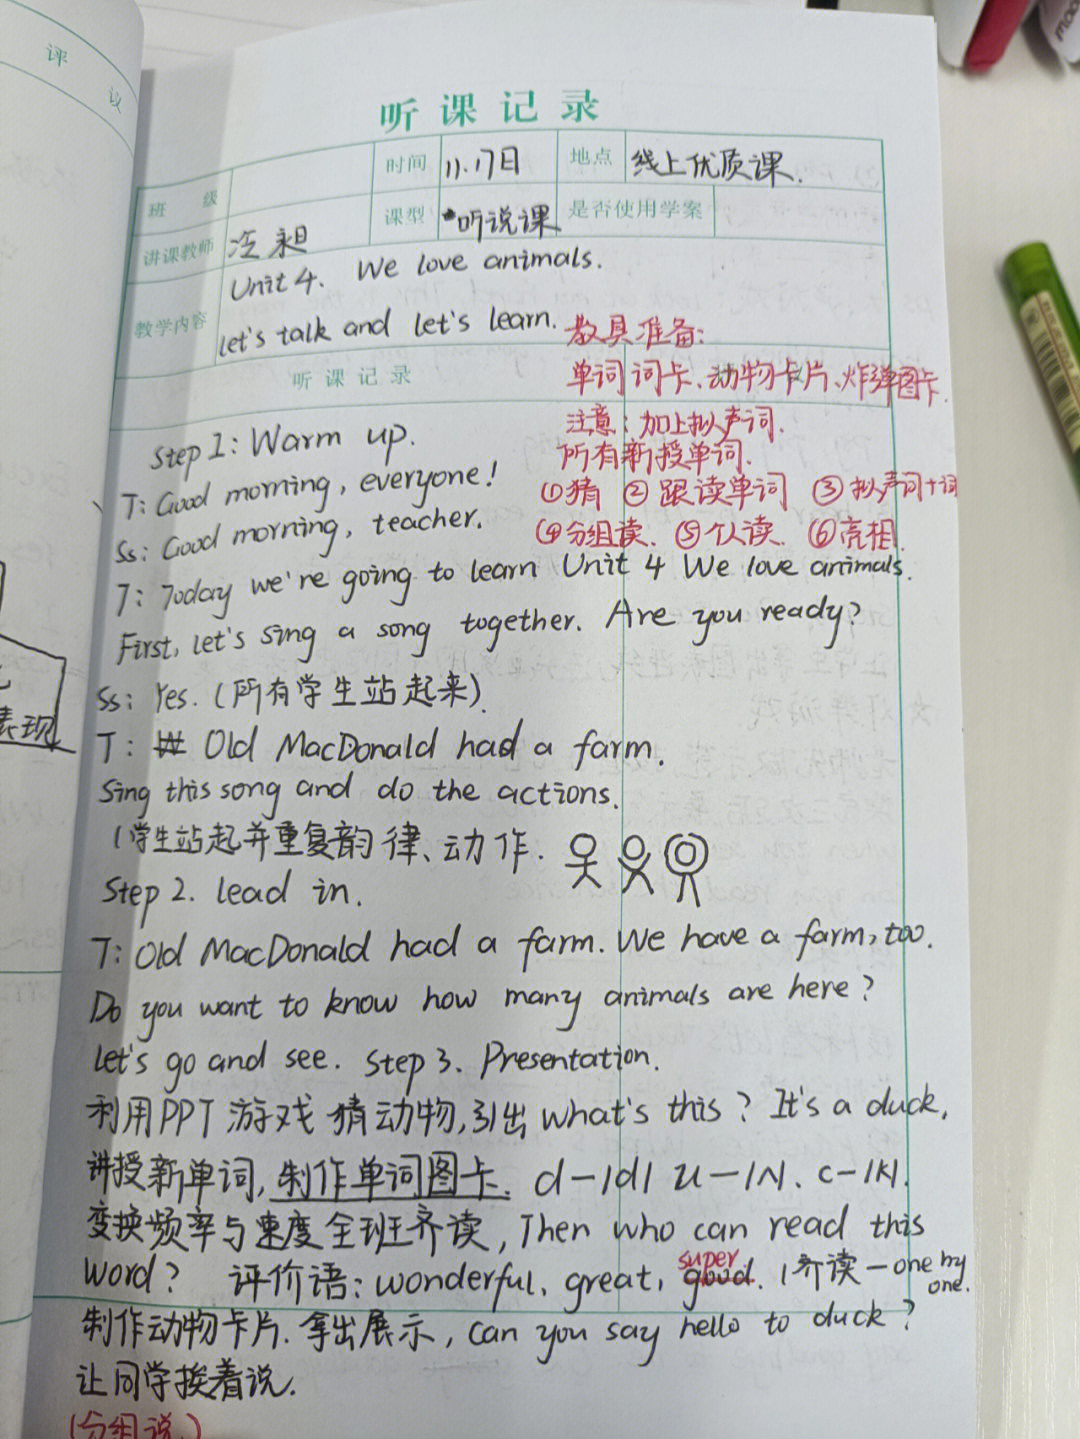 评 议
听课记录
班 级 时间 11.17日 地点 线上优质课.
讲课教师 课型 听说课 是否使用学案
教学内容 Unit 4. We love animals.
let's talk and let's learn.
听课记录
教具准备:
单词词卡、动物卡片、炸弹图卡.
注意:加上拟声词.
所有新授单词.
①猜 ②跟读单词 ③拟声词+词
④分组读. ⑤个人读. ⑥亮相.
Step 1: Warm up.
T: Good morning, everyone!
Ss: Good morning, teacher.
T: Today we're going to learn Unit 4 We love animals.
First, let's sing a song together. Are you ready?
Ss: Yes. (所有学生站起来).
T: Old MacDonald had a farm.
Sing this song and do the actions.
(学生站起并重复韵律、动作.
Step 2. lead in.
T: Old MacDonald had a farm. We have a farm, too.
Do you want to know how many animals are here?
let's go and see. Step 3. Presentation.
利用PPT游戏猜动物,引出what's this? It's a duck,
讲授新单词,制作单词图卡. d-/d/ u-/ʌ/、c-/k/.
变换频率与速度全班齐读, Then who can read this
word? 评价语: wonderful, great, super good. (齐读—one by one.
制作动物卡片.拿出展示, can you say hello to duck?
让同学挨着说.
(分组说.)
表现